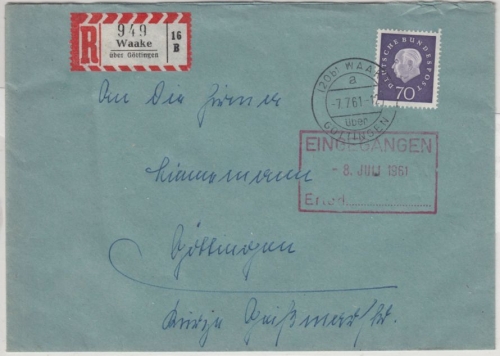 R
949
Waake
über Göttingen
16
B
(20b) WAAKE
a
-7.7.61.-1
über
GÖTTINGEN
DEUTSCHE BUNDESPOST
70
An die Firma
EINGEGANGEN
- 8. JULI 1961
Erled.
Göttingen
Kurze Geißmar Str.